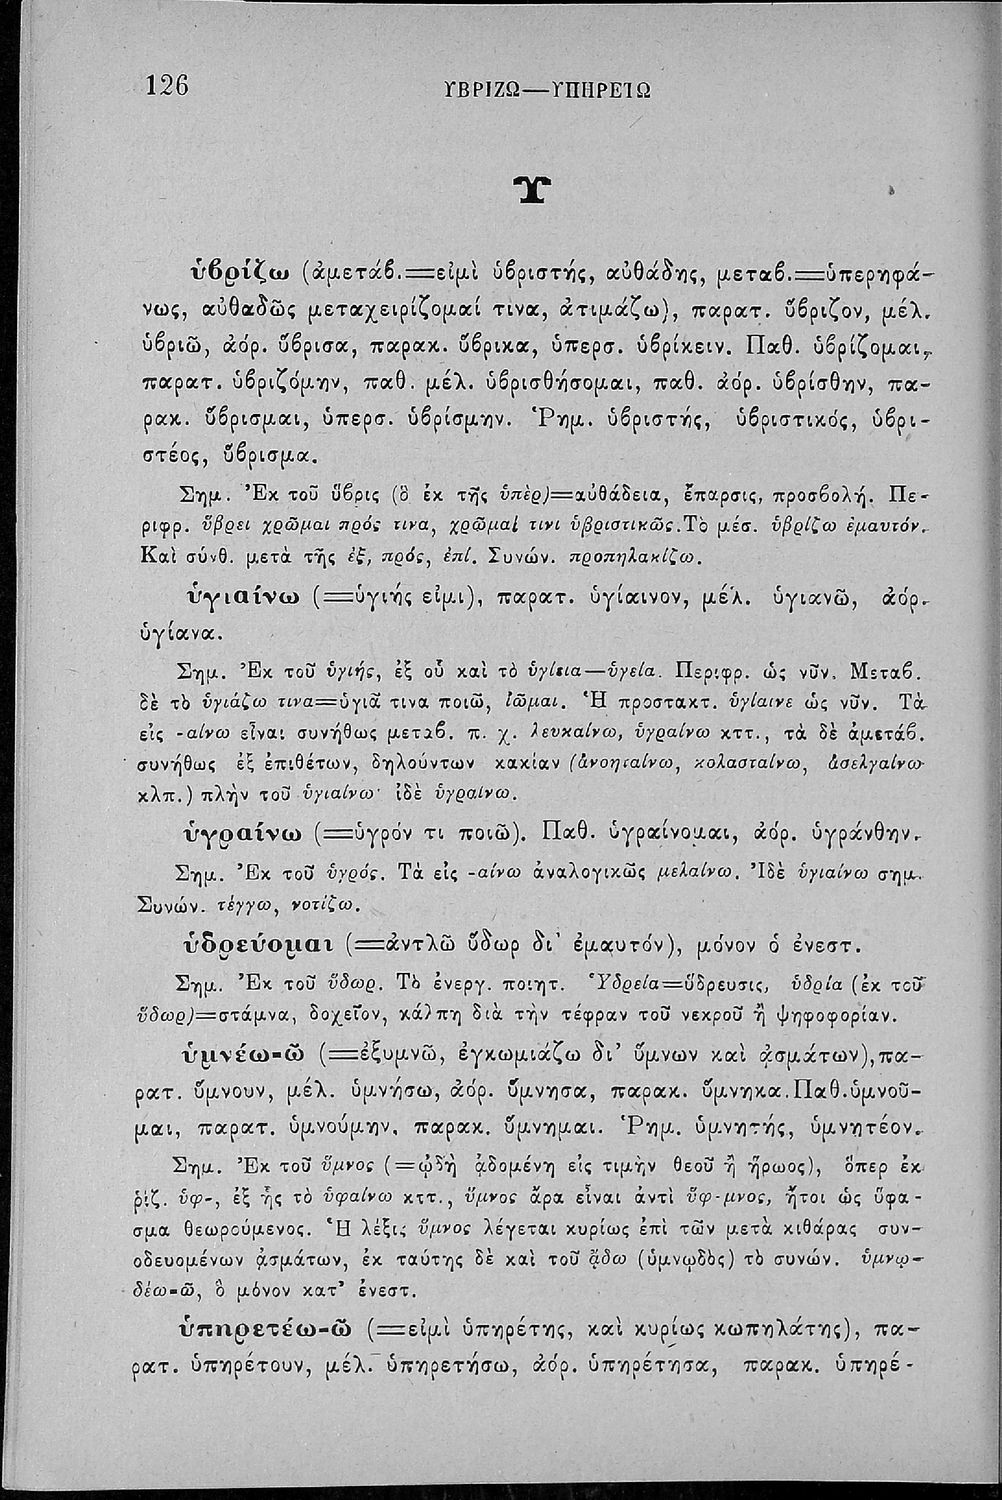 126
ΥΒΡΙΖΩ—ΥΠΗΡΕΤΩ
Υ
ὑβρίζω (ἀμετάβ.=εἰμὶ ὑβριστής, αὐθάδης, μεταβ.=ὑπερηφά-
νως, αὐθαδῶς μεταχειρίζομαί τινα, ἀτιμάζω), παρατ. ὕβριζον, μέλ.
ὑβριῶ, ἀόρ. ὕβρισα, παρακ. ὕβρικα, ὑπερσ. ὑβρίκειν. Παθ. ὑβρίζομαι,
παρατ. ὑβριζόμην, παθ. μέλ. ὑβρισθήσομαι, παθ. ἀόρ. ὑβρίσθην, πα-
ρακ. ὕβρισμαι, ὑπερσ. ὑβρίσμην. Ῥημ. ὑβριστής, ὑβριστικός, ὑβρι-
στέος, ὕβρισμα.
Σημ. Ἐκ τοῦ ὕβρις (ὃ ἐκ τῆς ὑπὲρ)=αὐθάδεια, ἔπαρσις, προσβολή. Πε-
ριφρ. ὕβρει χρῶμαι πρός τινα, χρῶμαί τινι ὑβριστικῶς. Τὸ μέσ. ὑβρίζω ἐμαυτόν.
Καὶ σύνθ. μετὰ τῆς ἐξ, πρός, ἐπί. Συνών. προπηλακίζω.
ὑγιαίνω (=ὑγιής εἰμι), παρατ. ὑγίαινον, μέλ. ὑγιανῶ, ἀόρ.
ὑγίανα.
Σημ. Ἐκ τοῦ ὑγιής, ἐξ οὗ καὶ τὸ ὑγίεια—ὑγεία. Περιφρ. ὡς νῦν. Μεταβ.
δὲ τὸ ὑγιάζω τινα=ὑγιᾶ τινα ποιῶ, ἰῶμαι. Ἡ προστακτ. ὑγίαινε ὡς νῦν. Τὰ
εἰς -αίνω εἶναι συνήθως μεταβ. π. χ. λευκαίνω, ὑγραίνω κττ., τὰ δὲ ἀμετάβ.
συνήθως ἐξ ἐπιθέτων, δηλούντων κακίαν (ἀνοηταίνω, κολασταίνω, ἀσελγαίνω
κλπ.) πλὴν τοῦ ὑγιαίνω· ἰδὲ ὑγραίνω.
ὑγραίνω (=ὑγρόν τι ποιῶ). Παθ. ὑγραίνομαι, ἀόρ. ὑγράνθην.
Σημ. Ἐκ τοῦ ὑγρός. Τὰ εἰς -αίνω ἀναλογικῶς μελαίνω. Ἰδὲ ὑγιαίνω σημ.
Συνών. τέγγω, νοτίζω.
ὑδρεύομαι (=ἀντλῶ ὕδωρ δι' ἐμαυτόν), μόνον ὁ ἐνεστ.
Σημ. Ἐκ τοῦ ὕδωρ. Τὸ ἐνεργ. ποιητ. Ὑδρεία=ὕδρευσις, ὑδρία (ἐκ τοῦ
ὕδωρ)=στάμνα, δοχεῖον, κάλπη διὰ τὴν τέφραν τοῦ νεκροῦ ἢ ψηφοφορίαν.
ὑμνέω-ῶ (=ἐξυμνῶ, ἐγκωμιάζω δι' ὕμνων καὶ ᾀσμάτων), πα-
ρατ. ὕμνουν, μέλ. ὑμνήσω, ἀόρ. ὕμνησα, παρακ. ὕμνηκα. Παθ. ὑμνοῦ-
μαι, παρατ. ὑμνούμην, παρακ. ὕμνημαι. Ῥημ. ὑμνητής, ὑμνητέον.
Σημ. Ἐκ τοῦ ὕμνος (=ᾠδὴ ᾀδομένη εἰς τιμὴν θεοῦ ἢ ἥρωος), ὅπερ ἐκ
ῥίζ. ὑφ-, ἐξ ἧς τὸ ὑφαίνω κττ., ὕμνος ἄρα εἶναι ἀντὶ ὕφ-μνος, ἤτοι ὡς ὕφα-
σμα θεωρούμενος. Ἡ λέξις ὕμνος λέγεται κυρίως ἐπὶ τῶν μετὰ κιθάρας συν-
οδευομένων ᾀσμάτων, ἐκ ταύτης δὲ καὶ τοῦ ᾄδω (ὑμνῳδὸς) τὸ συνών. ὑμνῳ-
δέω-ῶ, ὃ μόνον κατ' ἐνεστ.
ὑπηρετέω-ῶ (=εἰμὶ ὑπηρέτης, καὶ κυρίως κωπηλάτης), πα-
ρατ. ὑπηρέτουν, μέλ. ὑπηρετήσω, ἀόρ. ὑπηρέτησα, παρακ. ὑπηρέ-